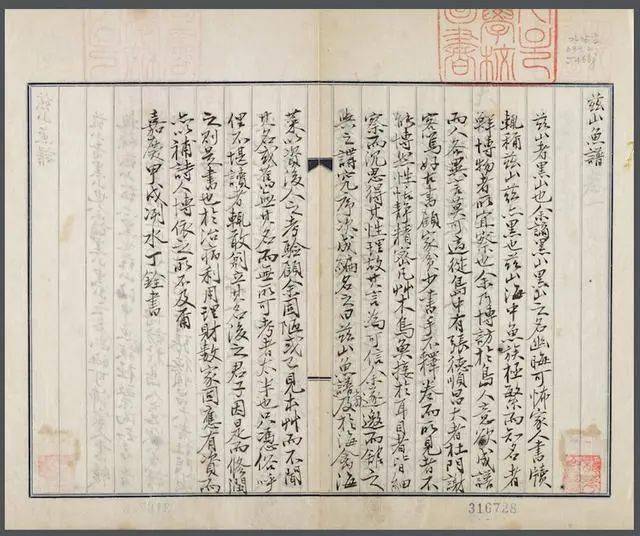 兹山魚譜
兹山者黑山也余謫黑山黑山之名幽晦可怖家人書牘
輒稱兹山兹亦黑也兹山海中魚族極繁而知名者
鮮博物者所宜察也余乃博訪於島人意欲成譜
而人各異言莫可適從島中有張德順昌大者杜門謝
客篤好古書顧家貧少書手不釋卷而所見者不
能博然性恬靜精密凡艸木鳥魚接於耳目者皆細
察而沉思得其性理故其言為可信余遂邀而館之
與之講究序次成編名之曰兹山魚譜旁及於海禽海
菜以資後人之考驗顧余固陋或已見本艸而不聞
其名或舊無其名而無所可考者太半也只憑俗呼
俚不堪讀者輒敢創立其名後之君子因是而修潤
之則是書也於治病利用理財數家固應有資而
亦以補詩人博依之所不及爾
嘉慶甲戌洌水丁銓書
316728